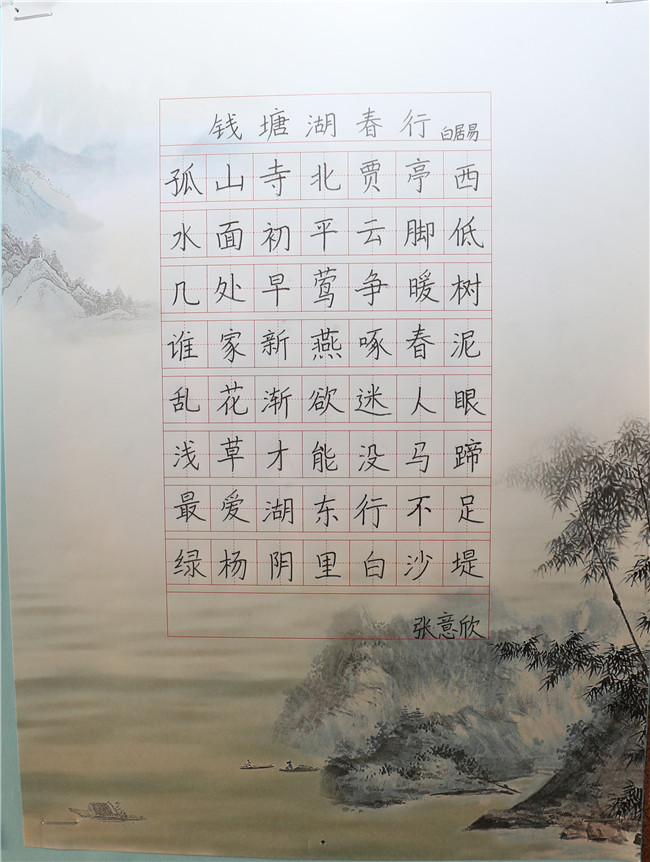 钱塘湖春行 白居易
孤山寺北贾亭西
水面初平云脚低
几处早莺争暖树
谁家新燕啄春泥
乱花渐欲迷人眼
浅草才能没马蹄
最爱湖东行不足
绿杨阴里白沙堤
张意欣